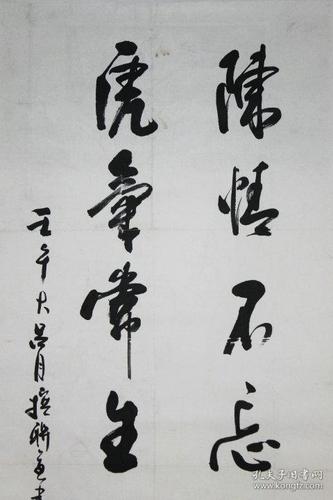 陈情不忘
虎气常生
壬午大吕月撰联并书
孔夫子旧书网
www.kongfz.com